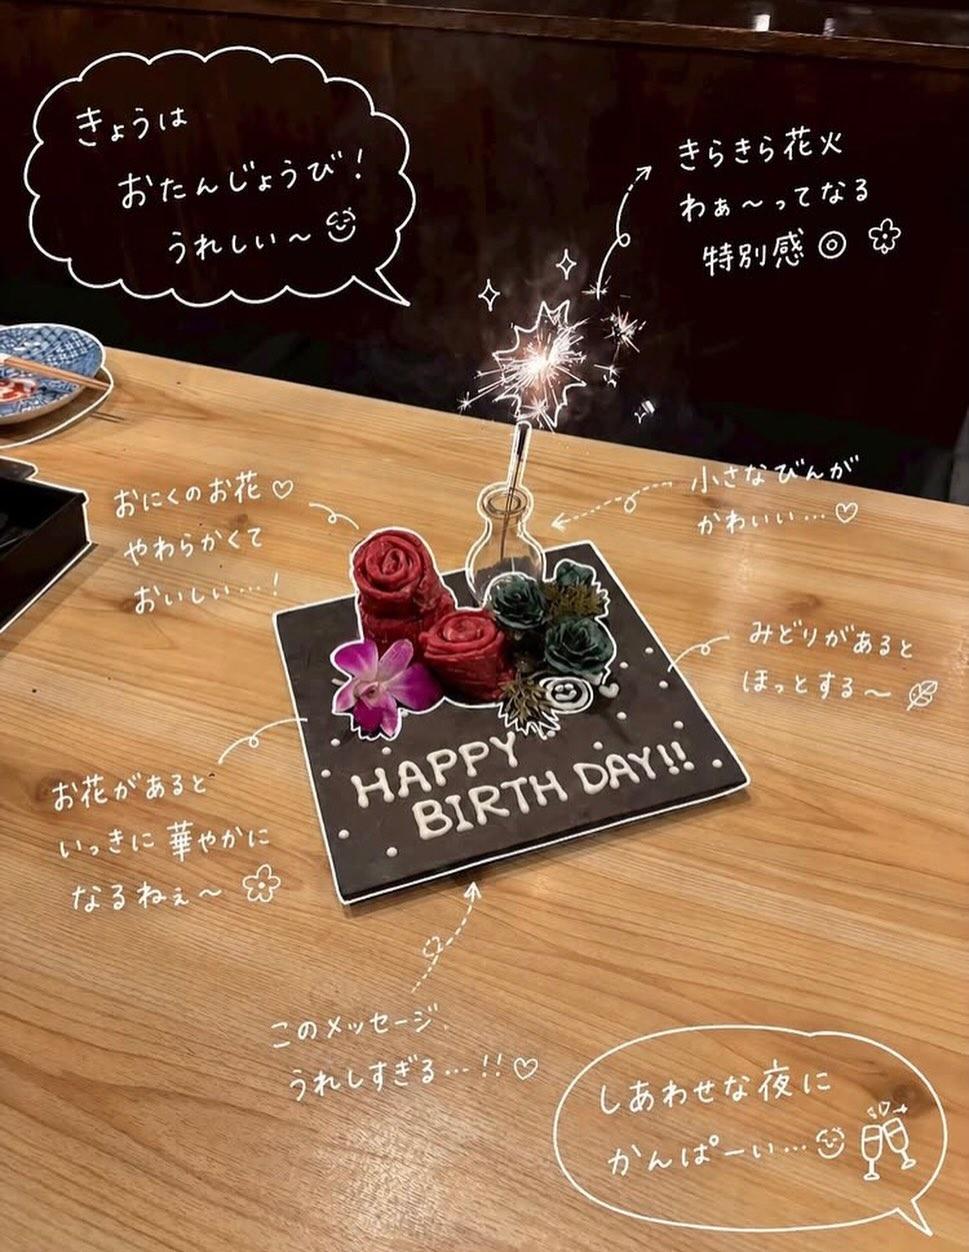 きょうは
おたんじょうび!
うれしい〜
きらきら花火
わぁ〜ってなる
特別感◎
小さなびんが
かわいい…♡
おにくのお花♡
やわらかくて
おいしい…!
みどりがあると
ほっとする〜
お花があると
いっきに華やかに
なるねぇ〜
HAPPY
BIRTH DAY!!
このメッセージ
うれしすぎる…!!♡
しあわせな夜に
かんぱーい…